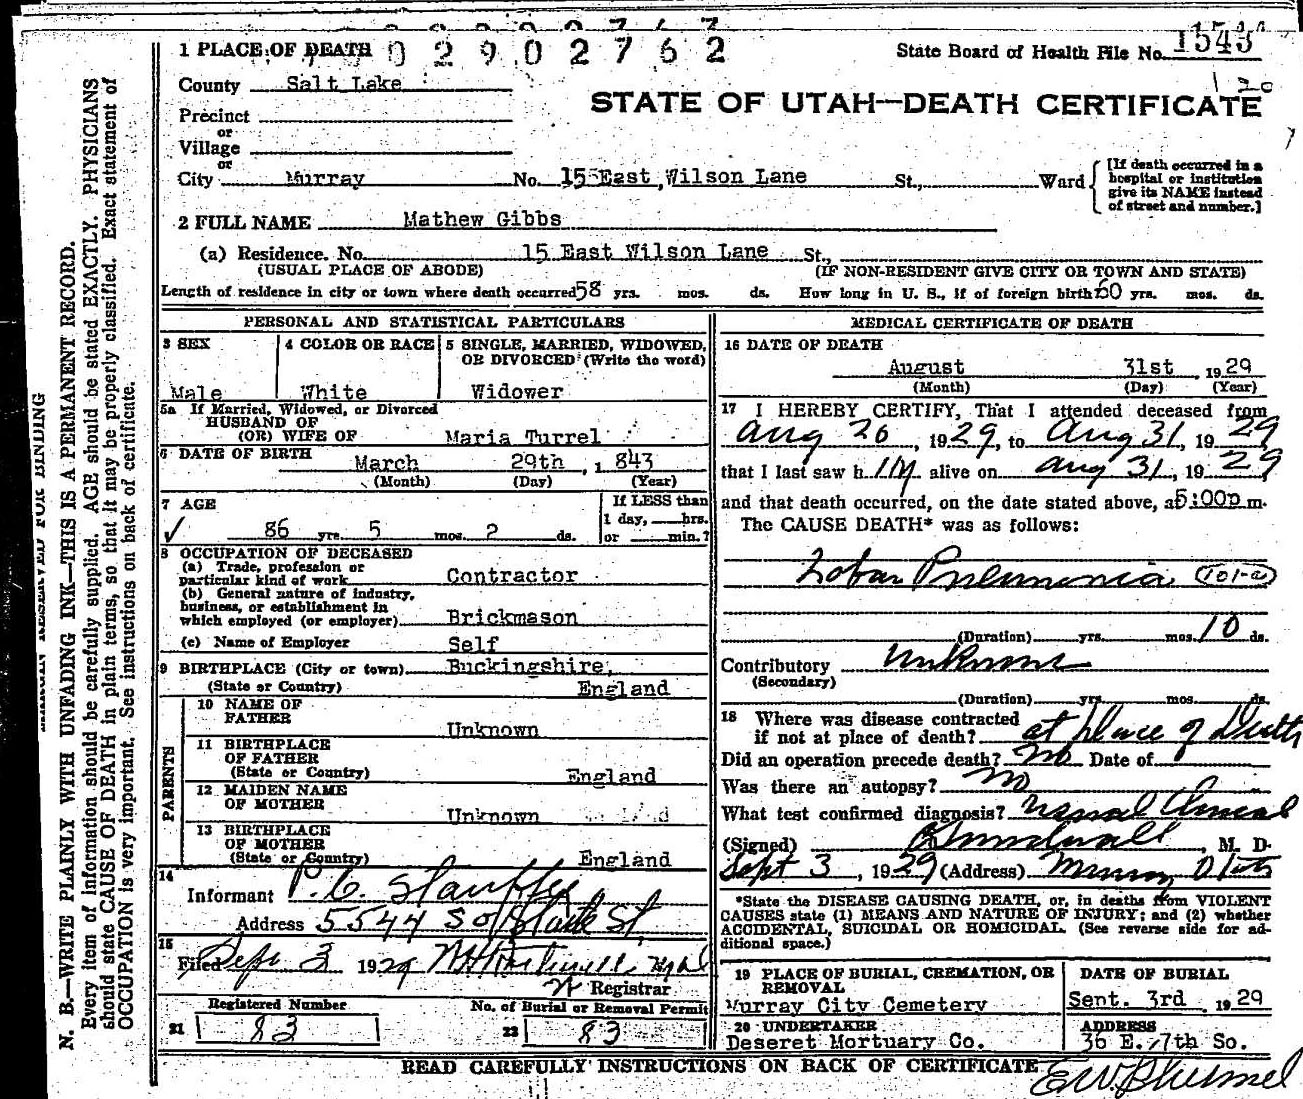 1 PLACE OF DEATH 02902762 State Board of Health File No. 1543
County Salt Lake
STATE OF UTAH—DEATH CERTIFICATE
Precinct
or
Village
or
City Murray No. 15 East Wilson Lane St., Ward
[If death occurred in a
hospital or institution
give its NAME instead
of street and number.]
2 FULL NAME Mathew Gibbs
(a) Residence. No. 15 East Wilson Lane St.,
(USUAL PLACE OF ABODE) (IF NON-RESIDENT GIVE CITY OR TOWN AND STATE)
Length of residence in city or town where death occurred 58 yrs. mos. ds. How long in U. S., if of foreign birth? 60 yrs. mos. ds.
PERSONAL AND STATISTICAL PARTICULARS
3 SEX
Male
4 COLOR OR RACE
White
5 SINGLE, MARRIED, WIDOWED,
OR DIVORCED (Write the word)
Widower
5a If Married, Widowed, or Divorced
HUSBAND OF
(OR) WIFE OF Maria Turrel
6 DATE OF BIRTH March 29th, 1843
(Month) (Day) (Year)
7 AGE
86 yrs. 5 mos. 2 ds.
If LESS than
1 day, hrs.
or min.?
8 OCCUPATION OF DECEASED
(a) Trade, profession or
particular kind of work Contractor
(b) General nature of industry,
business, or establishment in
which employed (or employer) Brickmason
(c) Name of Employer Self
9 BIRTHPLACE (City or town) Buckingshire,
(State or Country) England
PARENTS
10 NAME OF
FATHER Unknown
11 BIRTHPLACE
OF FATHER
(State or Country) England
12 MAIDEN NAME
OF MOTHER Unknown
13 BIRTHPLACE
OF MOTHER
(State or Country) England
14
Informant P. C. Stauffer
Address 5544 So State St.
15
Filed Sept 3 1929
Registrar
Registered Number
21 83
No. of Burial or Removal Permit
22 83
MEDICAL CERTIFICATE OF DEATH
16 DATE OF DEATH
August 31st, 1929
(Month) (Day) (Year)
17 I HEREBY CERTIFY, That I attended deceased from
Aug 26, 1929, to Aug 31, 1929
that I last saw him alive on Aug 31, 1929
and that death occurred, on the date stated above, at 5:00p m.
The CAUSE DEATH* was as follows:
Lobar Pneumonia (101-a)
(Duration) yrs. mos. 10 ds.
Contributory Unknown
(Secondary)
(Duration) yrs. mos. ds.
18 Where was disease contracted
if not at place of death? at place of Death
Did an operation precede death? No Date of
Was there an autopsy? No
What test confirmed diagnosis? Usual Clinical
(Signed) M. D.
Sept 3, 1929 (Address) Murray Utah
*State the DISEASE CAUSING DEATH, or, in deaths from VIOLENT
CAUSES state (1) MEANS AND NATURE OF INJURY; and (2) whether
ACCIDENTAL, SUICIDAL OR HOMICIDAL. (See reverse side for ad-
ditional space.)
19 PLACE OF BURIAL, CREMATION, OR
REMOVAL
Murray City Cemetery
DATE OF BURIAL
Sept. 3rd, 1929
20 UNDERTAKER
Deseret Mortuary Co.
ADDRESS
36 E. 7th So.
READ CAREFULLY INSTRUCTIONS ON BACK OF CERTIFICATE
MARGIN RESERVED FOR BINDING
N. B.—WRITE PLAINLY WITH UNFADING INK—THIS IS A PERMANENT RECORD.
Every item of information should be carefully supplied. AGE should be stated EXACTLY. PHYSICIANS
should state CAUSE OF DEATH in plain terms, so that it may be properly classified. Exact statement of
OCCUPATION is very important. See instructions on back of certificate.